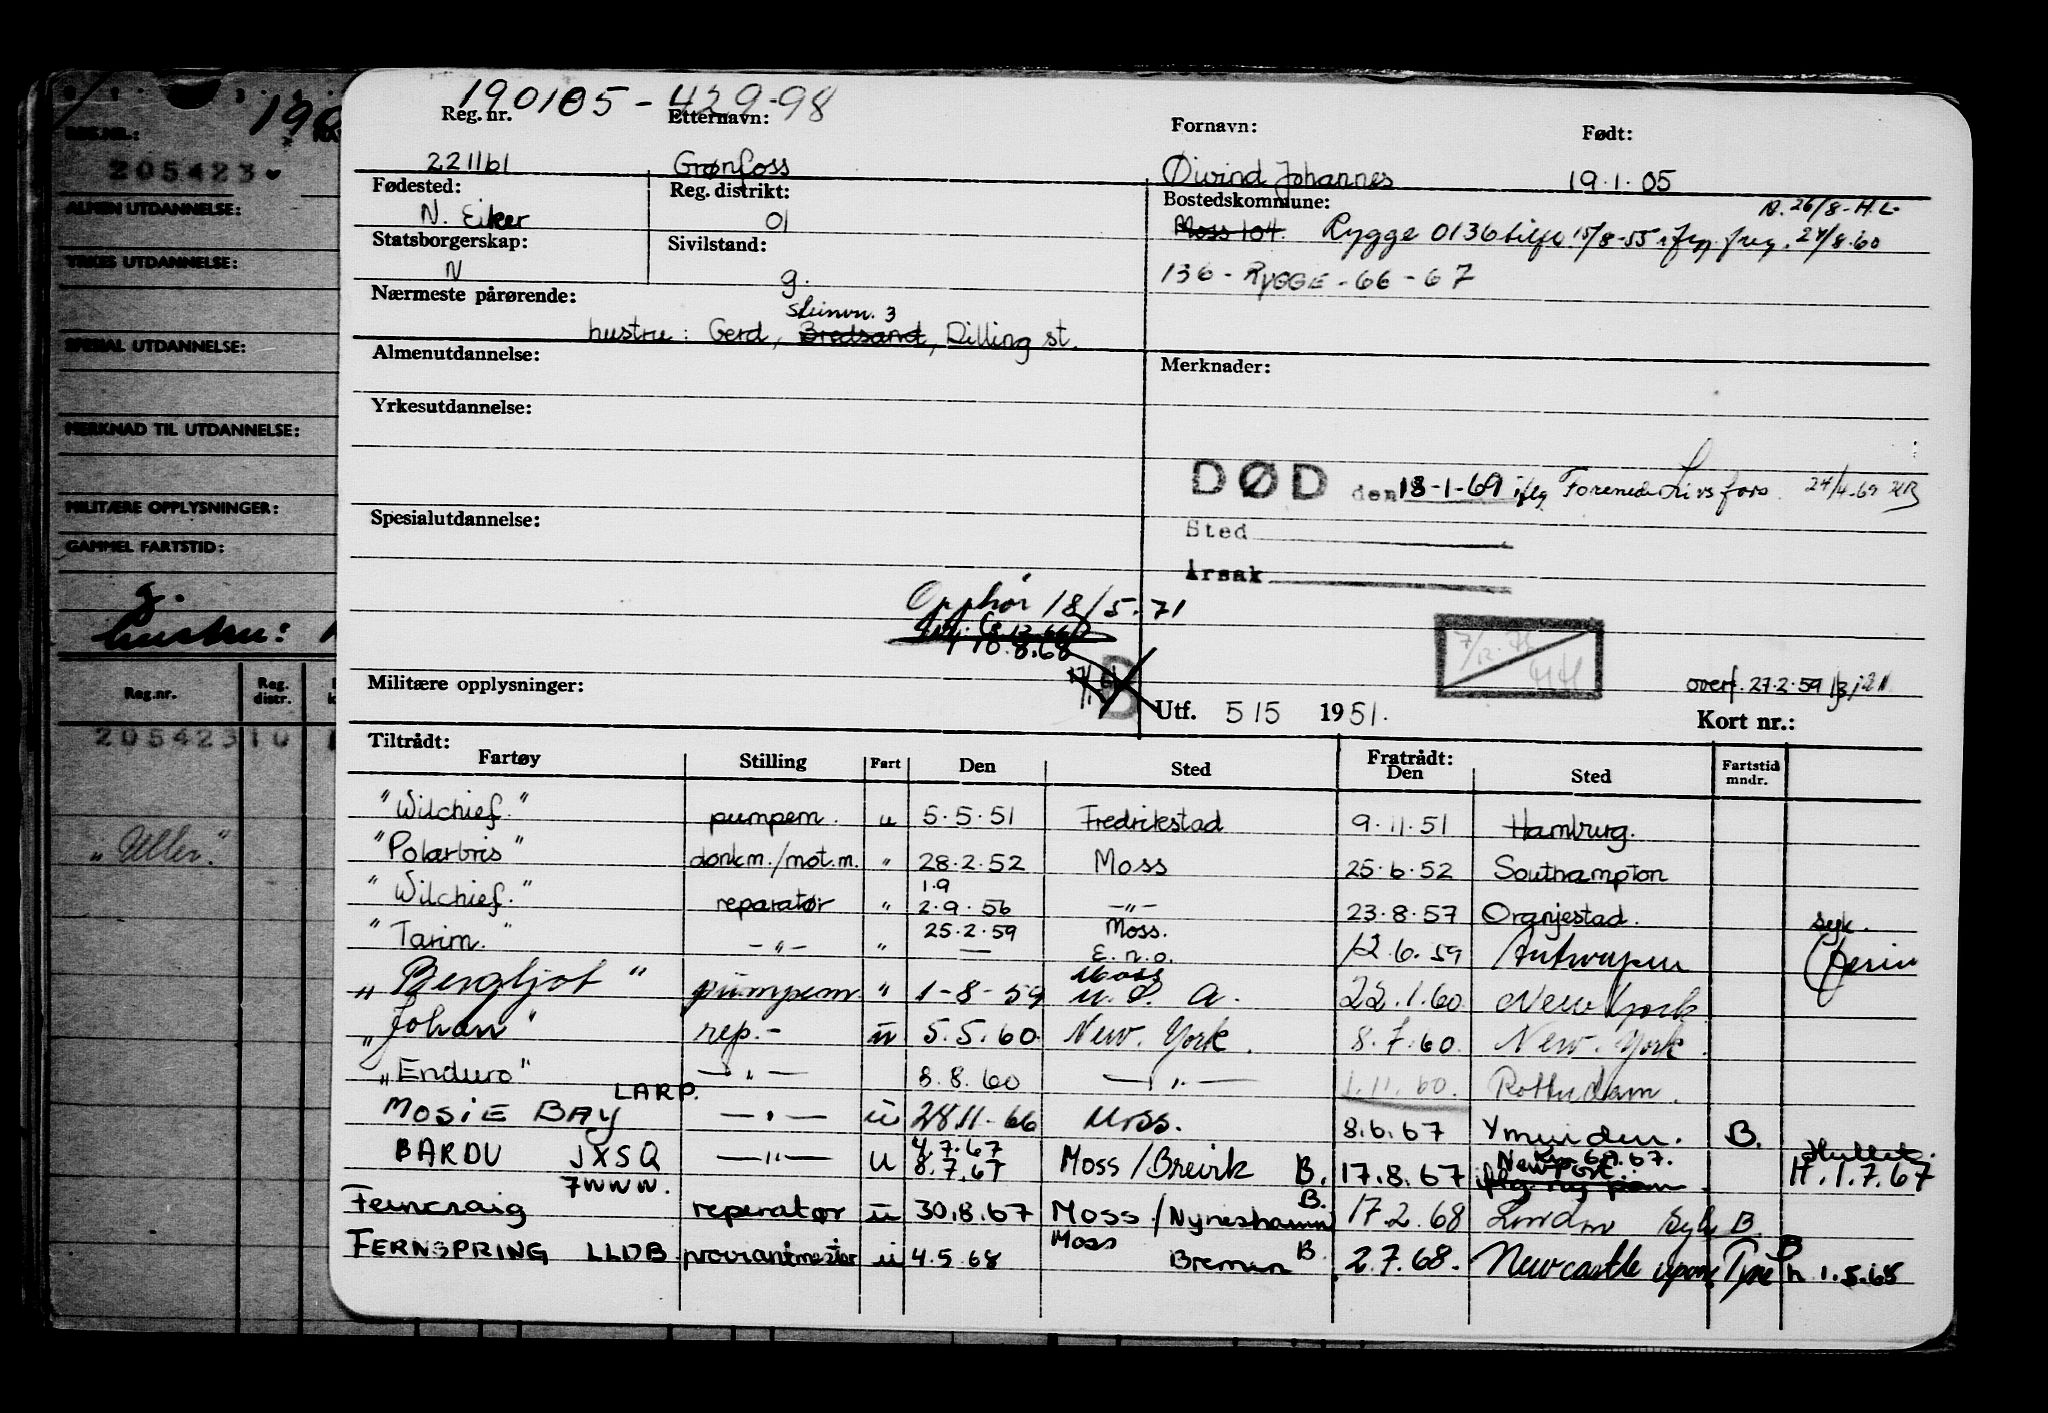 190105-429-98
Reg. nr. Etternavn: Fornavn: Født:
221161 Grønfoss Øivind Johannes 19.1.05
Fødested: Reg. distrikt: Bostedskommune:
N. Eiker 01 Moss 104. Rygge 0136 15/8-55 24/8.60
26/8-H.L.
Statsborgerskap: Sivilstand:
N g. 136 - RYGGE - 66 - 67
Nærmeste pårørende:
Steinvn. 3
hustru: Gerd, Bredsand, Dilling st.
Almenutdannelse: Merknader:
Yrkesutdannelse:
DØD den 18-1-69 iflg Forenede Livsfors. 24/4-69
Spesialutdannelse:
Sted
Årsak
Opphør 18/5.71
10.8.68
B
7/12.71
Militære opplysninger:
overf. 27.2.59
Utf. 515 1951. Kort nr.:
Tiltrådt: Fratrådt:
Fartøy Stilling Fart Den Sted Den Sted Fartstid mndr.
"Wilchief." pumpem. u 5.5.51 Fredrikstad 9.11.51 Hamburg.
"Polarbris" donkm./mot.m. " 28.2.52 Moss 25.6.52 Southampton
1.9
"Wilchief." reparatør " 2.9.56 -"- 23.8.57 Oranjestad. syk.
25.2.59 Moss.
"Tarim." -"- " — E.n.o. 12.6.59 Antwerpen Ferie
Moss
"Bergljot" pumpem. " 1-8-59 U.S.A. 22.1.60 New York
"Johan" rep.- u 5.5.60 New York. 8.7.60. New York.
"Enduro" -"- 8.8.60 -"- 1.11.60. Rotterdam.
LARP.
MOSIE BAY -"- u 28.11.66 Moss. 8.6.67 Ymuiden. B.
4.7.67
BARDU JXSQ -"- u 8.7.67 Moss/Brevik B. 17.8.67 Newport H. 1.7.67
7WWW.
Ferncraig reparatør u 30.8.67 Moss/Nyneshamn B. 17.2.68 London Syk B.
Moss
FERNSPRING LLDB proviantmester u 4.5.68 Bremen B. 2.7.68. Newcastle upon Tyne B h 1.5.68
REG.NR.:
205423
ALMEN UTDANNELSE:
YRKES UTDANNELSE:
SPESIAL UTDANNELSE:
MERKNAD TIL UTDANNELSE:
MILITÆRE OPPLYSNINGER:
GAMMEL FARTSTID:
g.
hustru:
Reg.nr. Reg. distr.
205423 10
"Uller."